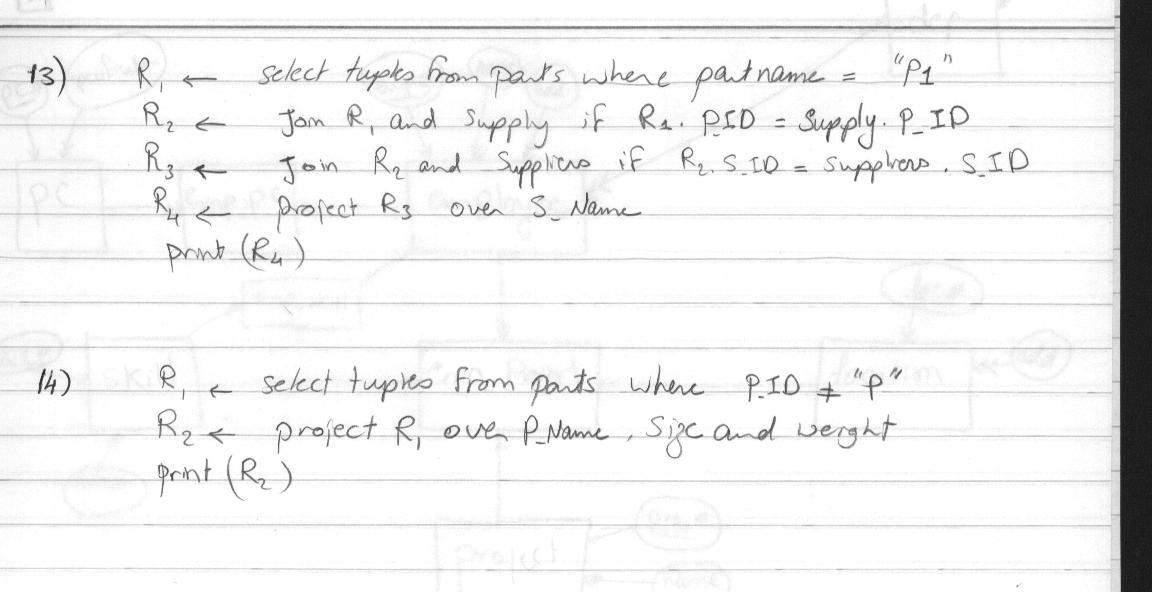 13) R1 ← select tuples from parts where partname = "P1"
R2 ← Join R1 and Supply if R1. P_ID = Supply. P_ID
R3 ← Join R2 and Suppliers if R2. S_ID = suppliers. S_ID
R4 ← project R3 over S_Name
print (R4)
14) R1 ← select tuples from parts where P_ID ≠ "P"
R2 ← project R1 over P_Name, Size and weight
print (R2)